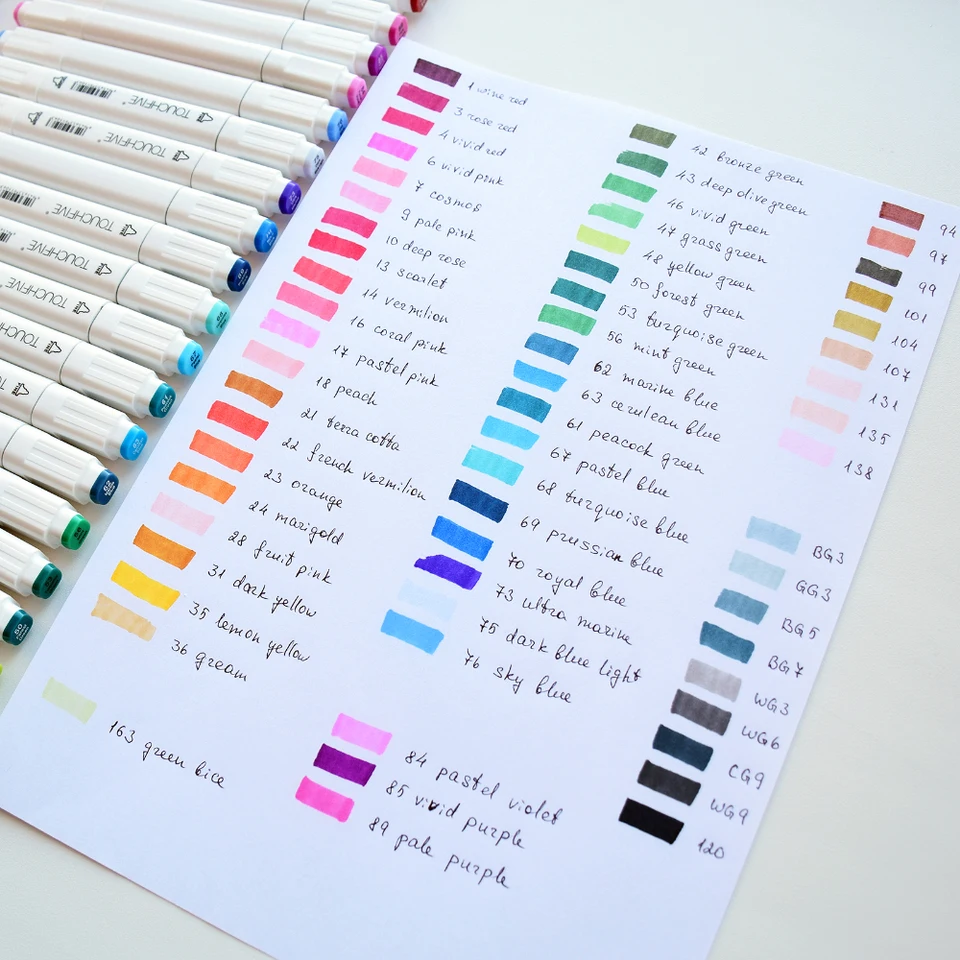 TOUCHFIVE
TOUCHFIVE
TOUCHFIVE
TOUCHFIVE
TOUCHFIVE
TOUCHFIVE
TOUCHFIVE
1 wine red
3 rose red
4 vivid red
6 vivid pink
7 cosmos
9 pale pink
10 deep rose
13 scarlet
14 vermilion
16 coral pink
17 pastel pink
18 peach
21 terra cotta
22 french vermilion
23 orange
24 marigold
28 fruit pink
31 dark yellow
35 lemon yellow
36 gream
163 green bice
42 bronze green
43 deep olive green
46 vivid green
47 grass green
48 yellow green
50 forest green
53 turquoise green
56 mint green
62 marine blue
63 cerulean blue
61 peacock green
67 pastel blue
68 turquoise blue
69 prussian blue
70 royal blue
73 ultra marine
75 dark blue light
76 sky blue
84 pastel violet
85 vivid purple
89 pale purple
94
97
99
101
104
107
131
135
138
BG3
GG3
BG5
BG7
WG3
WG6
CG9
WG9
120